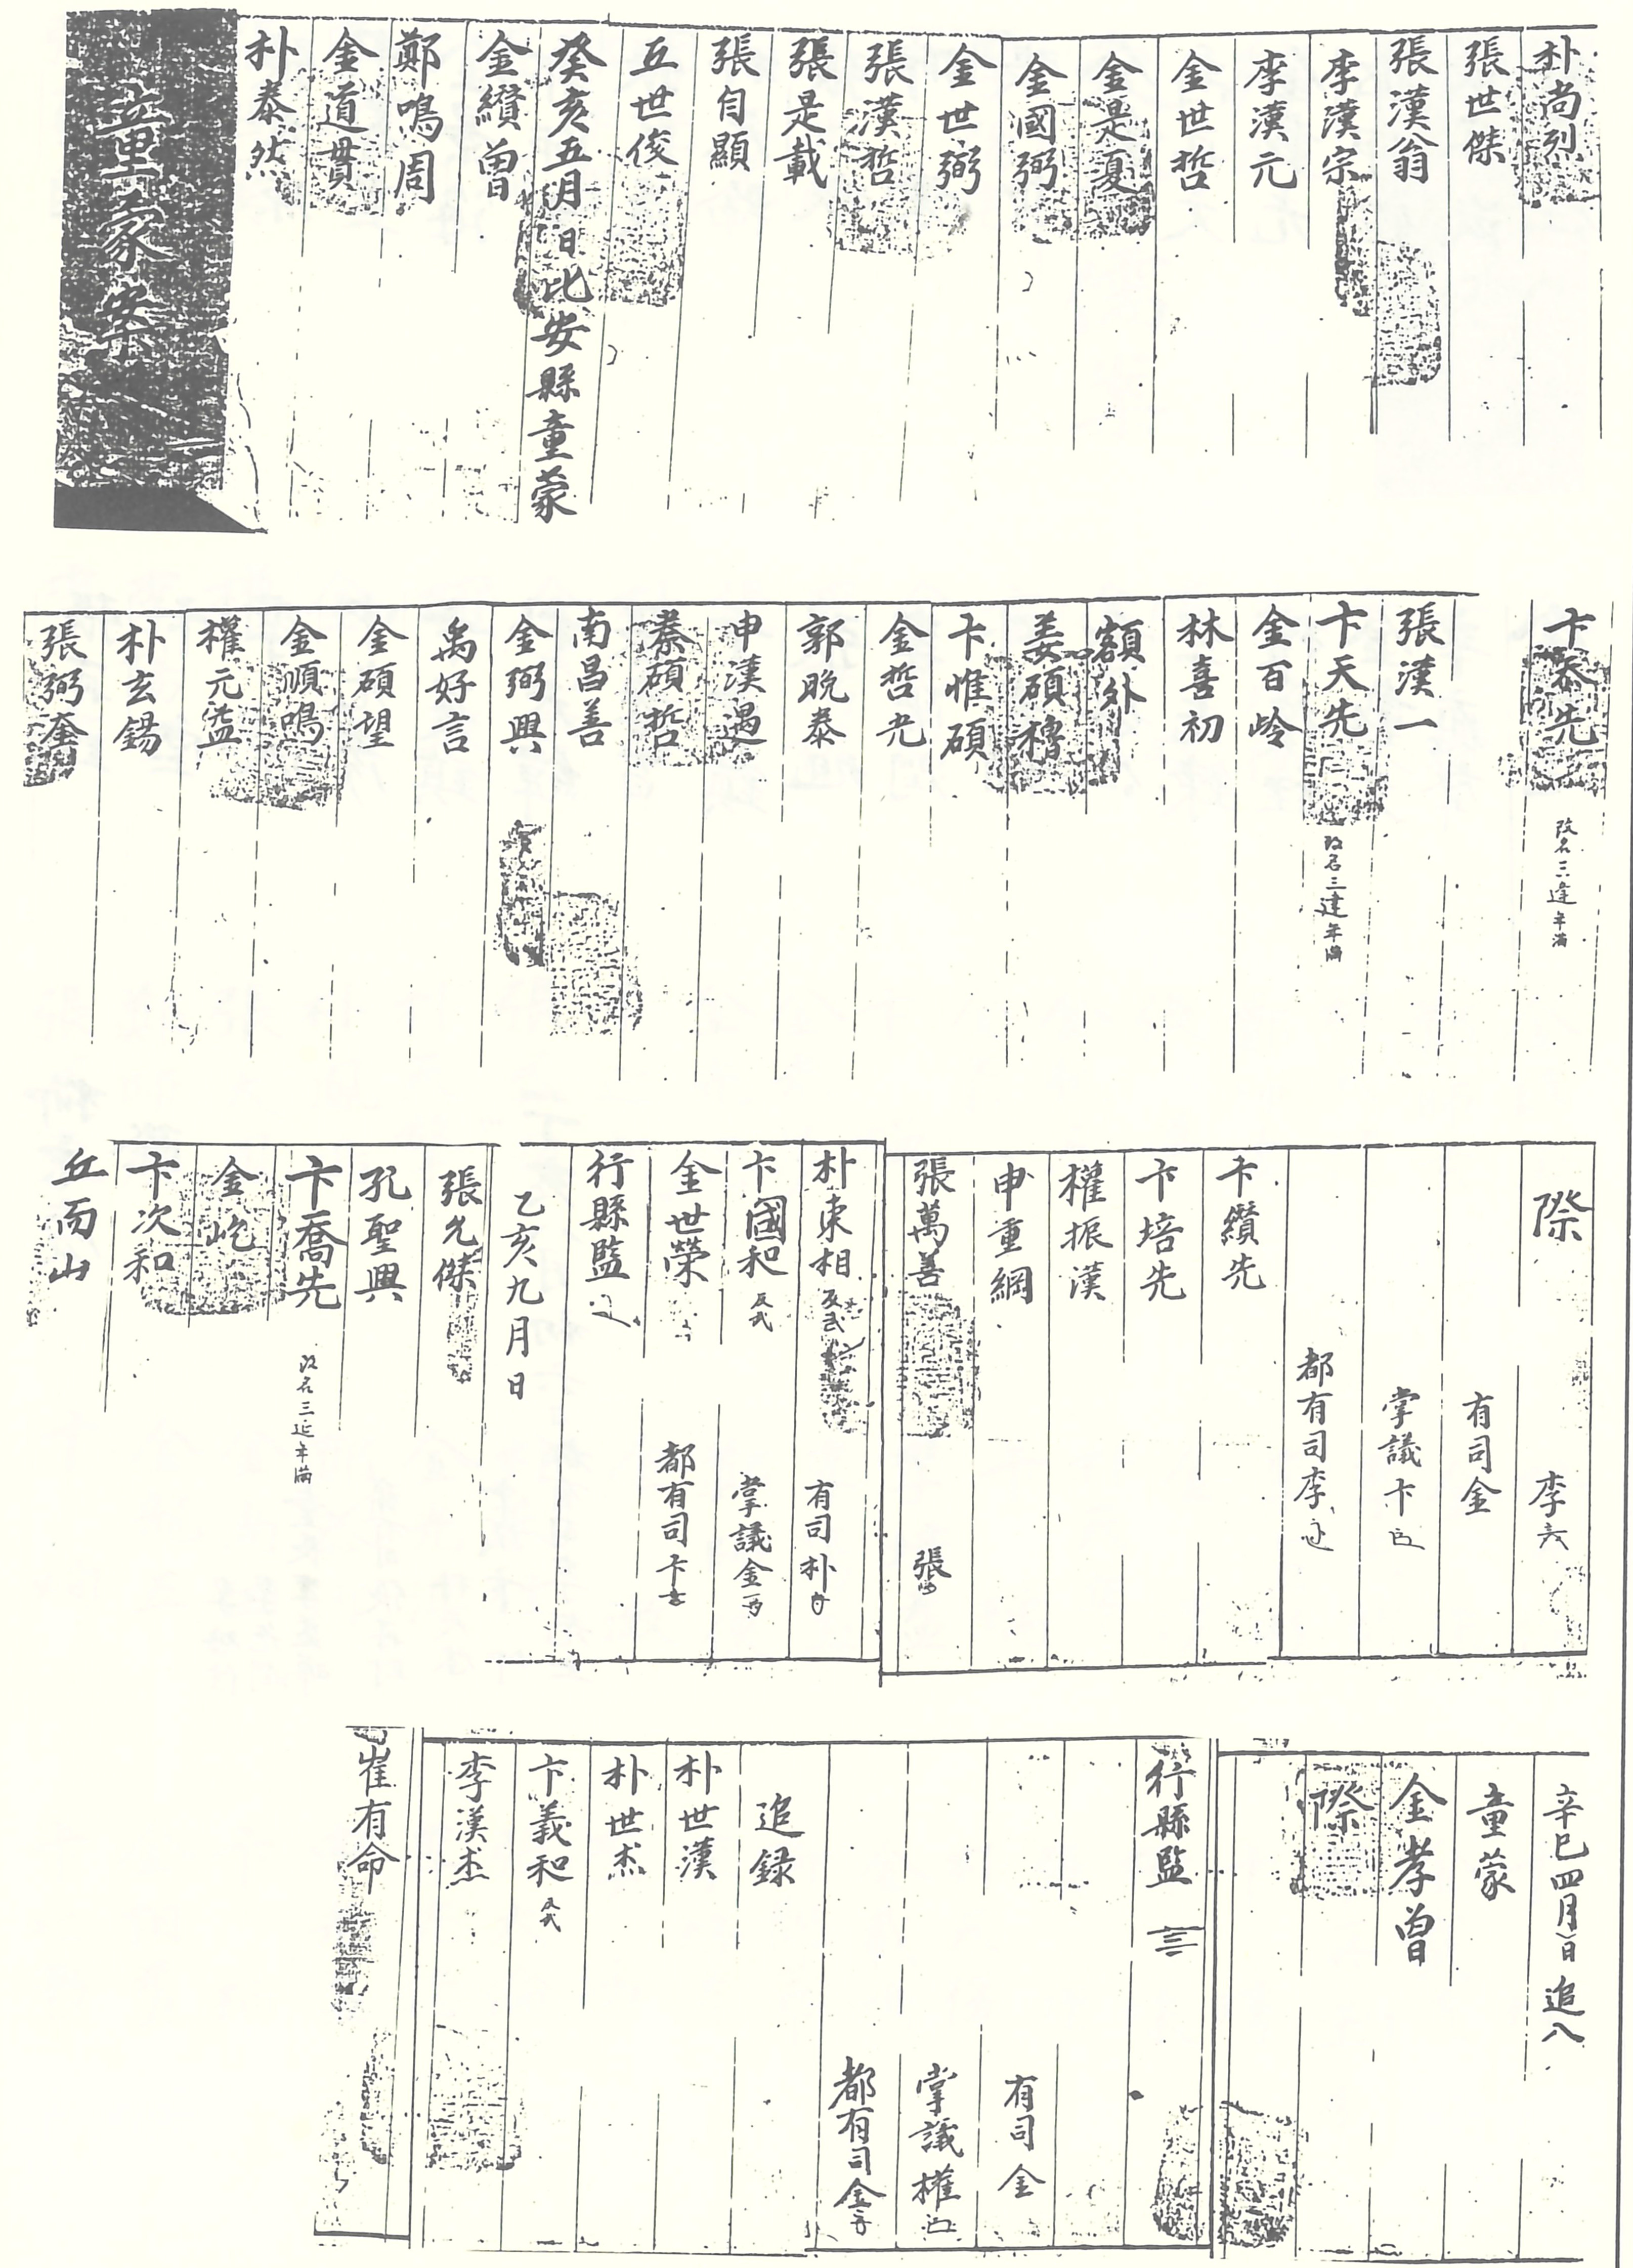 朴尚烈
張世傑
張漢翁
李漢宗
李漢元
金世哲
金是夏
金國弼
金世弼
張漢哲
張是載
張自顯
五世俊
癸亥五月 日比安縣童蒙
金纘曾
鄭鳴周
金道貫
朴泰然
童蒙案
卞泰先 改名三達年滿
張漢一
卞天先 改名三建年滿
金百岭
林喜初
額外
姜碩穆
卞惟碩
金哲光
郭晩泰
申漢遇
秦碩哲
南昌善
金弼興
禹好言
金碩望
金順鳴
權元益
朴玄錫
張弼奎
際 李
有司金
掌議卞
都有司李
卞纘先
卞培先
權振漢
申重綱
張萬善 張
朴東相 有司朴
卞國和 掌議金
金世榮 都有司卞
行縣監
乙亥九月 日
張允傑
孔聖興
卞喬先 改名三延年滿
金屹
卞次和
丘而山
辛巳四月 日追入
童蒙
金孝曾
際
行縣監
有司金
掌議權
都有司金
追録
朴世漢
朴世杰
卞義和
李漢杰
崔有命